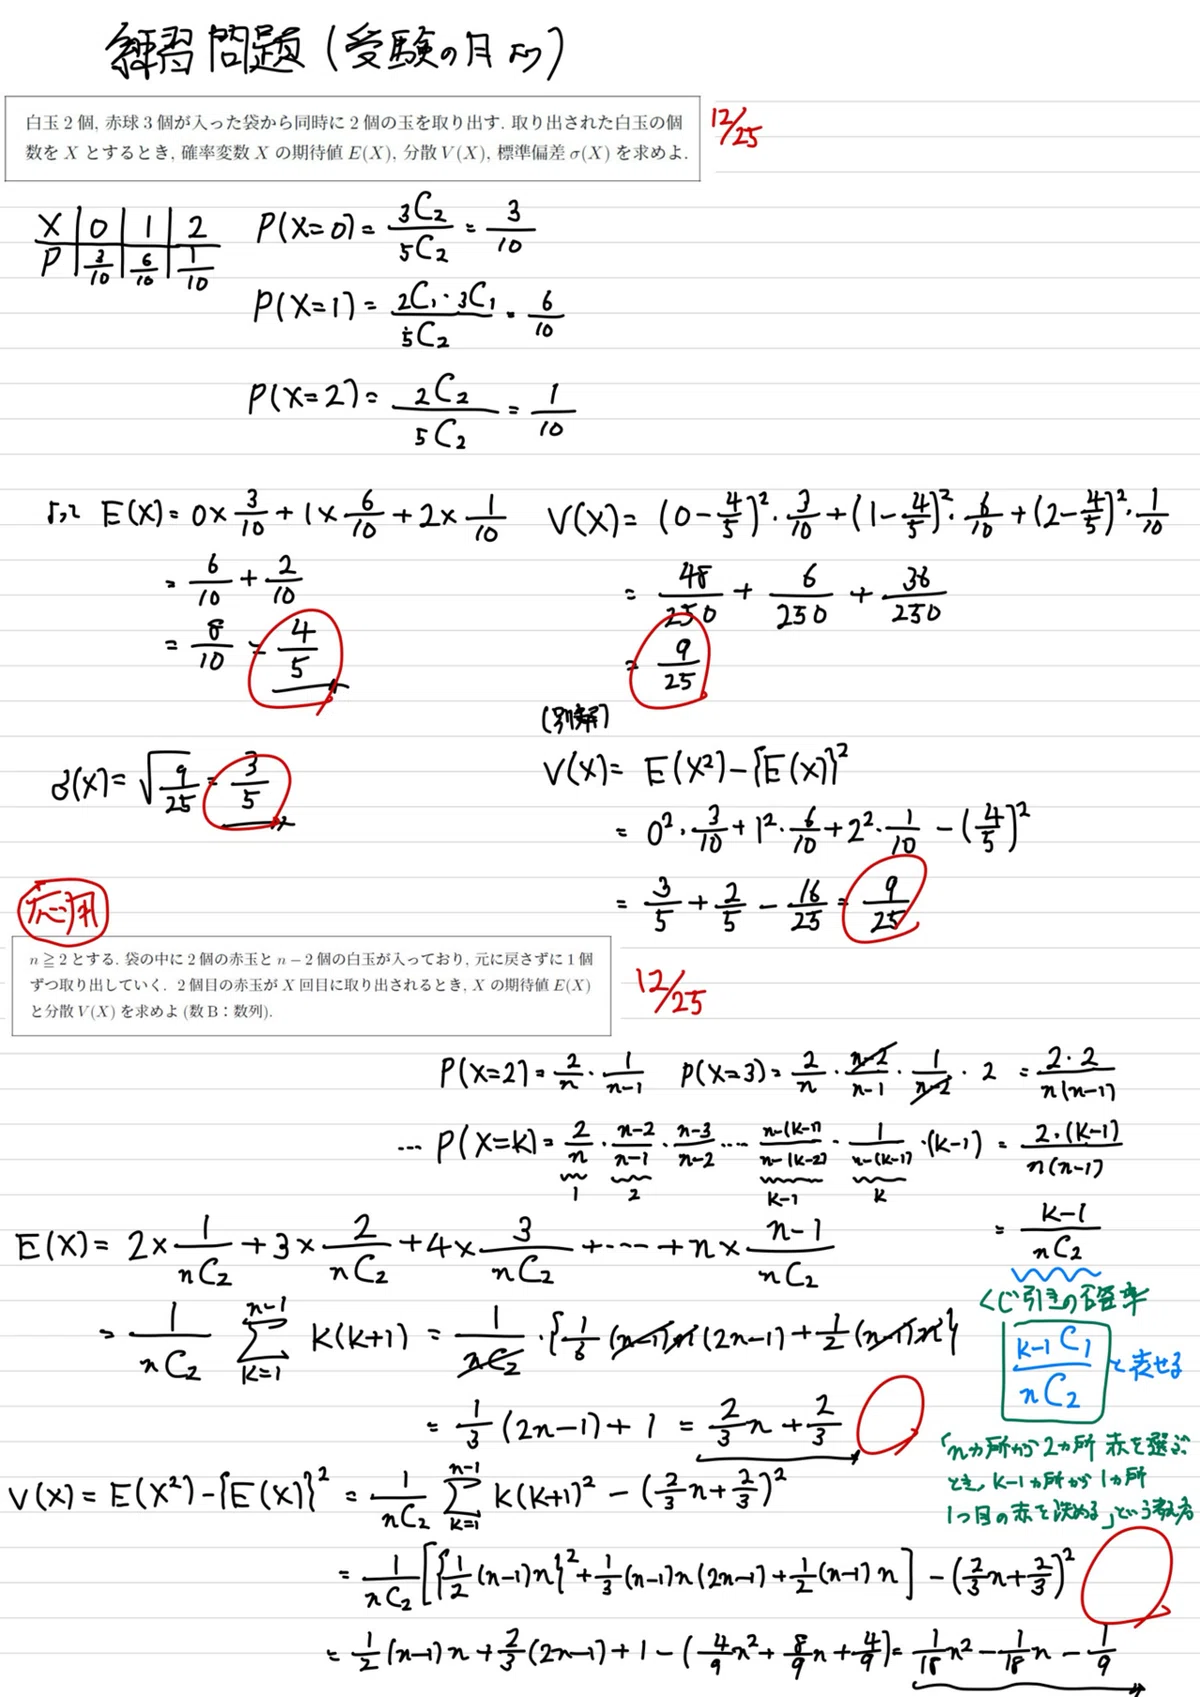 練習問題(受験の月より)
白玉2個, 赤球3個が入った袋から同時に2個の玉を取り出す. 取り出された白玉の個
数を X とするとき, 確率変数 X の期待値 E(X), 分散 V(X), 標準偏差 σ(X) を求めよ.
12/25
X | 0 | 1 | 2
P | 3/10 | 6/10 | 1/10
P(X=0) = 3C2/5C2 = 3/10
P(X=1) = 2C1・3C1/5C2 = 6/10
P(X=2) = 2C2/5C2 = 1/10
よって E(X) = 0×3/10 + 1×6/10 + 2×1/10
= 6/10 + 2/10
= 8/10 = 4/5
V(X) = (0-4/5)²・3/10 + (1-4/5)²・6/10 + (2-4/5)²・1/10
= 48/250 + 6/250 + 36/250
= 9/25
σ(X) = √9/25 = 3/5
(別解)
V(X) = E(X²) - {E(X)}²
= 0²・3/10 + 1²・6/10 + 2²・1/10 - (4/5)²
= 3/5 + 2/5 - 16/25 = 9/25
応用
n ≧ 2 とする. 袋の中に2個の赤玉と n − 2 個の白玉が入っており, 元に戻さずに1個
ずつ取り出していく. 2個目の赤玉が X 回目に取り出されるとき, X の期待値 E(X)
と分散 V(X) を求めよ (数B:数列).
12/25
P(X=2) = 2/n・1/n-1 P(X=3) = 2/n・n-2/n-1・1/n-2・2 = 2・2/n(n-1)
… P(X=k) = 2/n・n-2/n-1・n-3/n-2…n-(k-1)/n-(k-2)・1/n-(k-1)・(k-1) = 2・(k-1)/n(n-1)
1 2 k-1 k
= k-1/nC2
E(X) = 2×1/nC2 + 3×2/nC2 + 4×3/nC2 + … + n×n-1/nC2
= 1/nC2 Σ[k=1, n-1] k(k+1) = 1/nC2・{1/6(n-1)n(2n-1) + 1/2(n-1)n}
= 1/3(2n-1) + 1 = 2/3n + 2/3
くじ引きの確率
k-1C1/nC2 と表せる
「nカ所から2カ所 赤を選ぶ
とき, k-1カ所から1カ所
1つ目の赤を決める」という考え方
V(X) = E(X²) - {E(X)}² = 1/nC2 Σ[k=1, n-1] k(k+1)² - (2/3n + 2/3)²
= 1/nC2 [{1/2(n-1)n}² + 1/3(n-1)n(2n-1) + 1/2(n-1)n] - (2/3n + 2/3)²
= 1/2(n-1)n + 2/3(2n-1) + 1 - (4/9n² + 8/9n + 4/9) = 1/18n² - 1/18n - 1/9